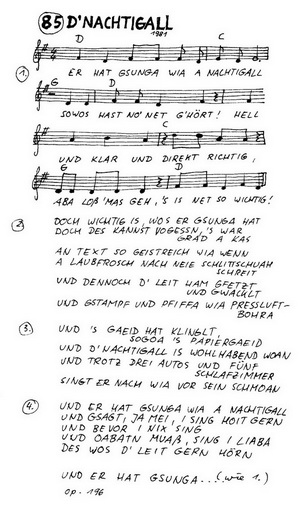 85 D'NACHTIGALL
1981
D C
1. ER HAT GSUNGA WIA A NACHTIGALL
G D
SOWOS HAST NO' NET G'HÖRT! HELL
C
UND KLAR UND DIREKT RICHTIG,
G D
ABA LOß'MAS GEH, 'S IS NET SO WICHTIG!
2. DOCH WICHTIG IS, WOS ER GSUNGA HAT
DOCH DES KANNST VOGESSN, 'S WAR
GRAD A KAS
AN TEXT SO GEISTREICH WIA WENN
A LAUBFROSCH NACH NEIE SCHLITTSCHUAH
SCHREIT
UND DENNOCH D' LEIT HAM GFETZT
UND GWACHLT
UND GSTAMPF UND PFIFFA WIA PRESSLUFT-
BOHRA
3. UND 'S GAEID HAT KLINGLT,
SOGOA 'S PAPIERGAEID
UND D'NACHTIGALL IS WOHLHABEND WOAN
UND TROTZ DREI AUTOS UND FÜNF
SCHLAFZIMMER
SINGT ER NACH WIA VOR SEIN SCHMOAN
4. UND ER HAT GSUNGA WIA A NACHTIGALL
UND GSAGT, JA MEI, I SING HOIT GERN
UND BEVOR I NIX SING
UND OABATN MUAß, SING I LIABA
DES WOS D' LEIT GERN HÖRN
UND ER HAT GSUNGA... (wie 1.)
op. 196